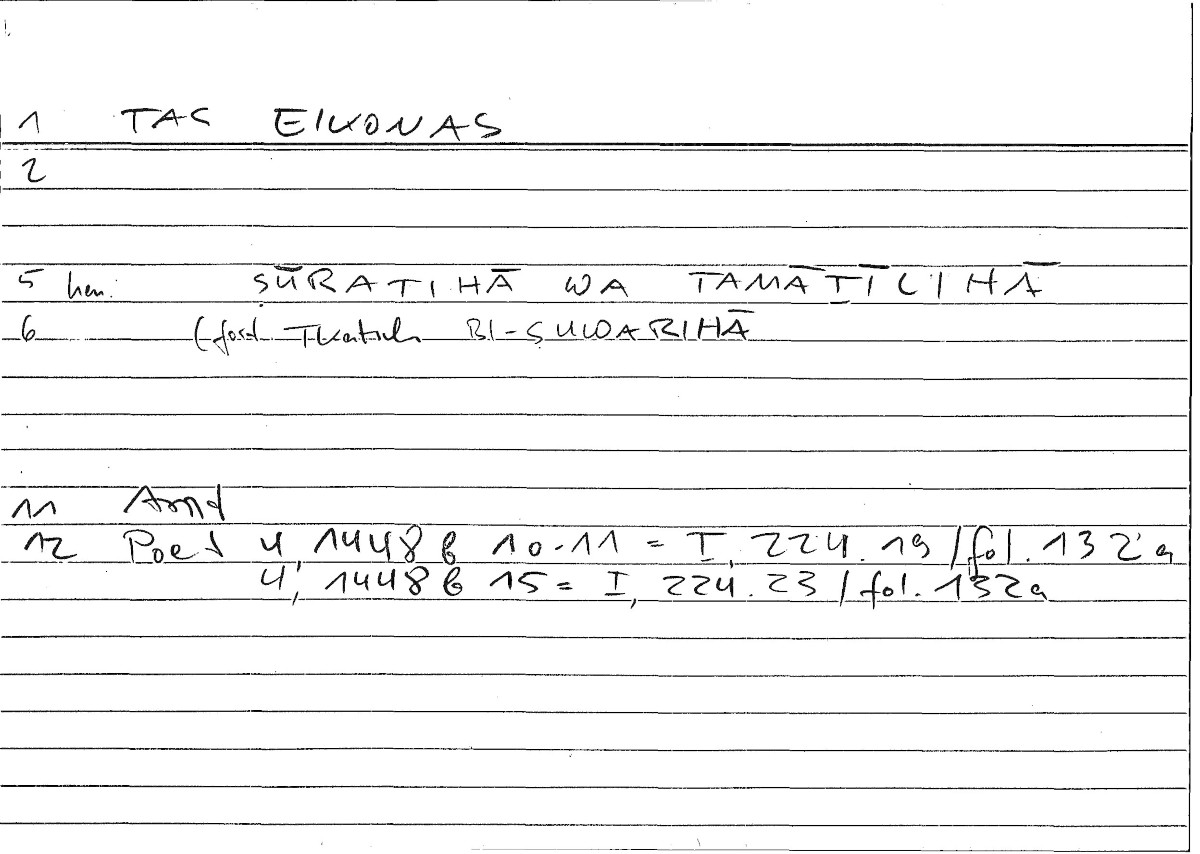 1 TAS EIKONAS
2
5 hen. ṢŪRATIHĀ WA TAMĀṮĪLIHĀ
6 (ford Tkatsch BI-ṢUWARIHĀ
11 Arnd
12 Poet 4, 1448 b 10-11 = I, 224.19 / fol. 132 a
4, 1448 b 15 = I, 224.23 / fol. 132a